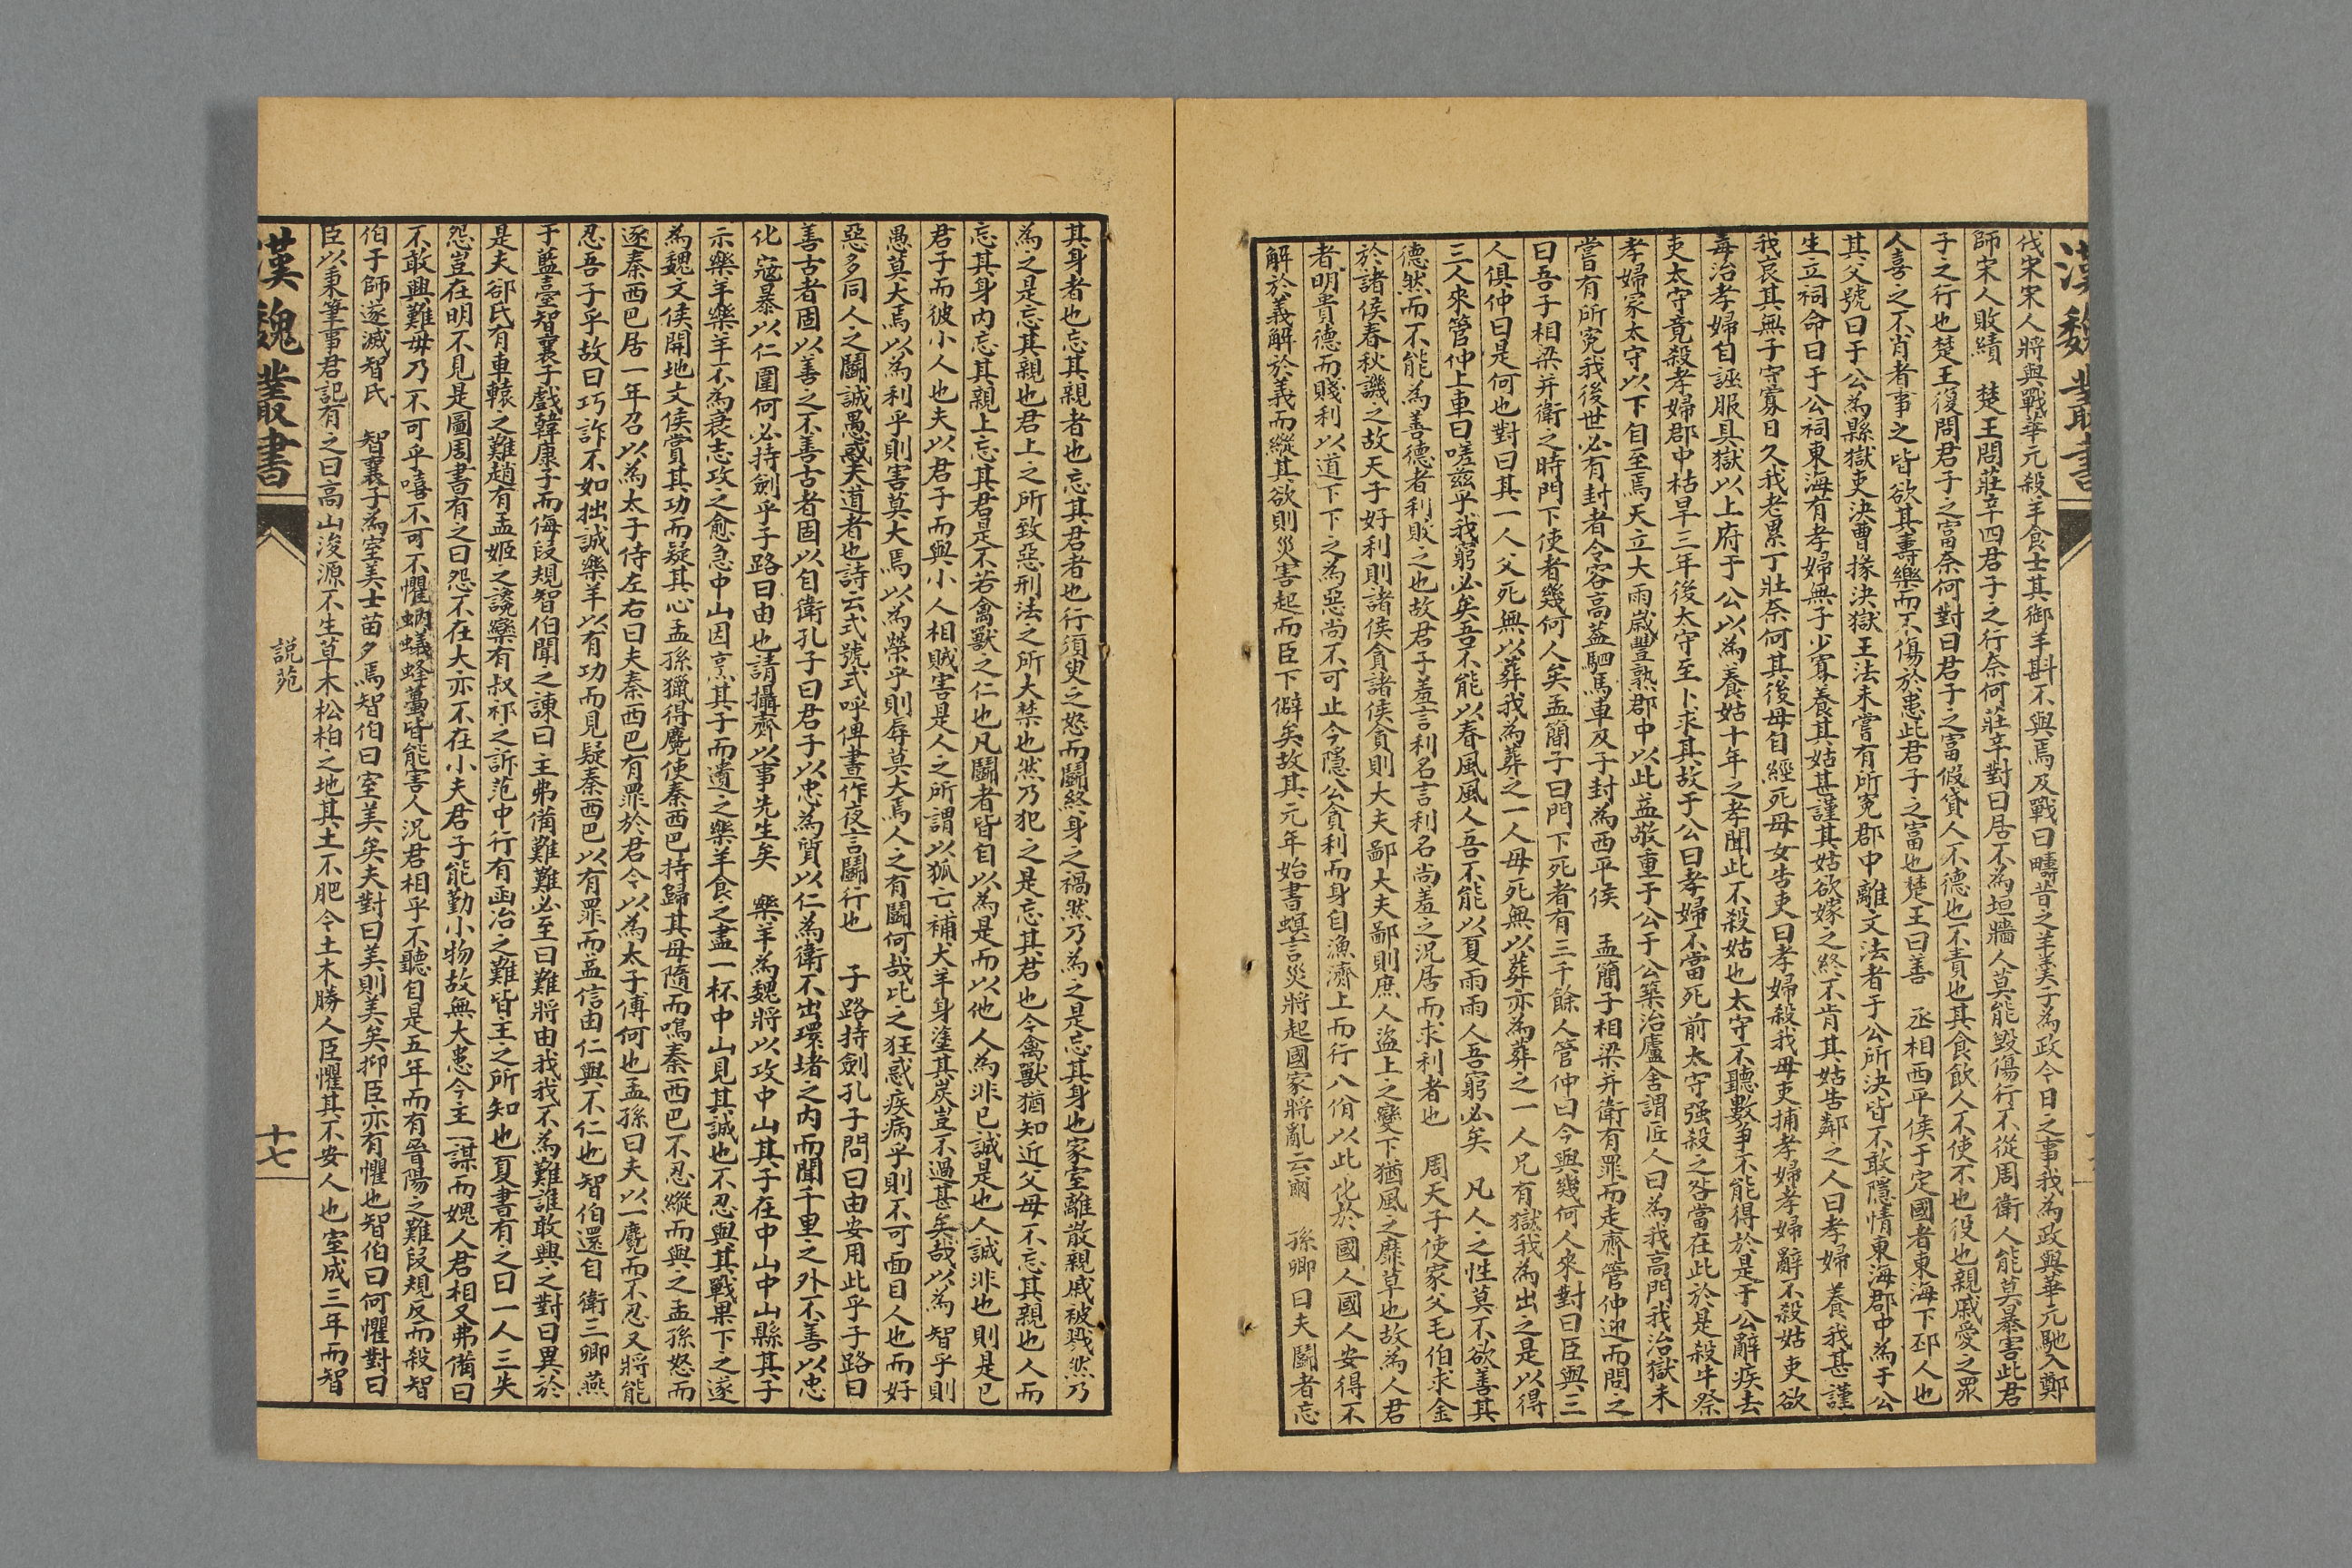 漢魏叢書
伐宋宋人將與戰華元殺羊食士其御羊斟不與焉及戰曰疇昔之羊羹子為政今日之事我為政與華元馳入鄭
師宋人敗績　楚王問莊辛曰君子之行奈何莊辛對曰居不為垣牆人莫能毀傷行不從周衛人能莫暴害此君
子之行也楚王復問君子之富奈何對曰君子之富假貸人不德也不責也其食飲人不使不也役也親戚愛之眾
人喜之不肖者事之皆欲其壽樂而不傷於患此君子之富也楚王曰善　丞相西平侯于定國者東海下邳人也
其父號曰于公為縣獄吏決曹掾決獄王法未嘗有所冤郡中離文法者于公所決皆不敢隱情東海郡中為于公
生立祠命曰于公祠東海有孝婦無子少寡養其姑甚謹其姑欲嫁之終不肯其姑告鄰之人曰孝婦養我甚謹
我哀其無子守寡日久我老累丁壯奈何其後母自經死母女告吏曰孝婦殺我母吏捕孝婦孝婦辭不殺姑吏欲
毒治孝婦自誣服具獄以上府于公以為養姑十年之孝聞此不殺姑也太守不聽數爭不能得於是于公辭疾去
吏太守竟殺孝婦郡中枯旱三年後大守至卜求其故于公曰孝婦不當死前太守强殺之咎當在此於是殺牛祭
孝婦冢太守以下自至焉天立大雨歲豐熟郡中以此益敬重于公于公築治廬舍謂匠人曰為我高門我治獄未
嘗有所冤我後世必有封者令容高葢駟馬車及子封為西平侯　孟簡子相梁并衛有罪而走齊管仲迎而問之
曰吾子相梁并衛之時門下使者幾何人矣孟簡子曰門下死者有三千餘人管仲曰今與幾何人來對曰臣與三
人俱仲曰是何也對曰其一人父死無以葬我為葬之一人母死無以葬亦為葬之一人兄有獄我為出之是以得
三人來管仲上車曰嗟茲乎我窮必矣吾不能以春風風人吾不能以夏雨雨人吾窮必矣　凡人之性莫不欲善其
德然而不能為善德者利敗之也故君子羞言利名言利名尚羞之況居而求利者也　周天子使家父毛伯求金
於諸侯春秋譏之故天子好利則諸侯貪諸侯貪則大夫鄙大夫鄙則庶人盜上之變下猶風之靡草也故為人君
者明貴德而賤利以道下下之為惡尚不可止今隱公貪利而身自漁濟上而行八佾以此化於國人國人安得不
解於義解於義而縱其欲則災害起而臣下僻矣故其元年始書螟言災將起國家將亂云爾　孫卿曰夫鬭者忘
其身者也忘其親者也忘其君者也行須臾之怒而鬭終身之禍然乃為之是忘其身也家室離散親戚被戮然乃
為之是忘其親也君上之所致惡刑法之所大禁也然乃犯之是忘其君也今禽獸猶知近父母不忘其親也人而
忘其身內忘其親上忘其君是不若禽獸之仁也凡鬭者皆自以為是而以他人為非已誠是也人誠非也則是已
君子而彼小人也夫以君子而與小人相賊害是人之所謂以狐亡補犬羊身塗其炭豈不過甚矣哉以為智乎則
愚莫大焉以為利乎則害莫大焉以為榮乎則辱莫大焉人之有鬭何哉比之狂惑疾病乎則不可面目人也而好
惡多同人之鬭誠愚惑夭道者也詩云式號式呼俾晝作夜言鬭行也　子路持劍孔子問曰由安用此乎子路曰
善古者固以善之不善古者固以自衛孔子曰君子以忠為質以仁為衛不出環堵之内而聞千里之外不善以忠
化寇暴以仁圍何必持劍乎子路曰由也請攝齊以事先生矣　樂羊為魏將以攻中山其子在中山中山縣其子
示樂羊樂羊不為衰志攻之愈急中山因烹其子而遺之樂羊食之盡一杯中山見其誠也不忍與其戰果下之遂
為魏文侯開地文侯賞其功而疑其心孟孫獵得麑使秦西巴持歸其母隨而鳴秦西巴不忍縱而與之孟孫怒而
逐秦西巴居一年召以為太子侍左右曰夫秦西巴有罪於君今以為太子傅何也孟孫曰夫以一麑而不忍又將能
忍吾子乎故曰巧詐不如拙誠樂羊以有功而見疑秦西巴以有罪而益信由仁與不仁也智伯還自衛三卿燕
于藍臺智襄子戲韓康子而侮段規智伯聞之諫曰主弗備難難必至曰難將由我我不為難誰敢興之對曰異於
是夫郤氏有車轅之難趙有孟姬之讒欒有叔祁之訴范中行有函冶之難皆主之所知也夏書有之曰一人三失
怨豈在明不見是圖周書有之曰怨不在大亦不在小夫君子能勤小物故無大患今主一謀而媿人君相又弗備曰
不敢興難毋乃不可乎嘻不可不懼蚋蟻蜂蠆皆能害人況君相乎不聽自是五年而有晉陽之難段規反而殺智
伯于師遂滅智氏　智襄子為室美士茁夕焉智伯曰室美矣夫對曰美則美矣抑臣亦有懼也智伯曰何懼對曰
臣以秉筆事君記有之曰高山浚源不生草木松柏之地其土不肥今土木勝人臣懼其不安人也室成三年而智
漢魏叢書
説苑
十七